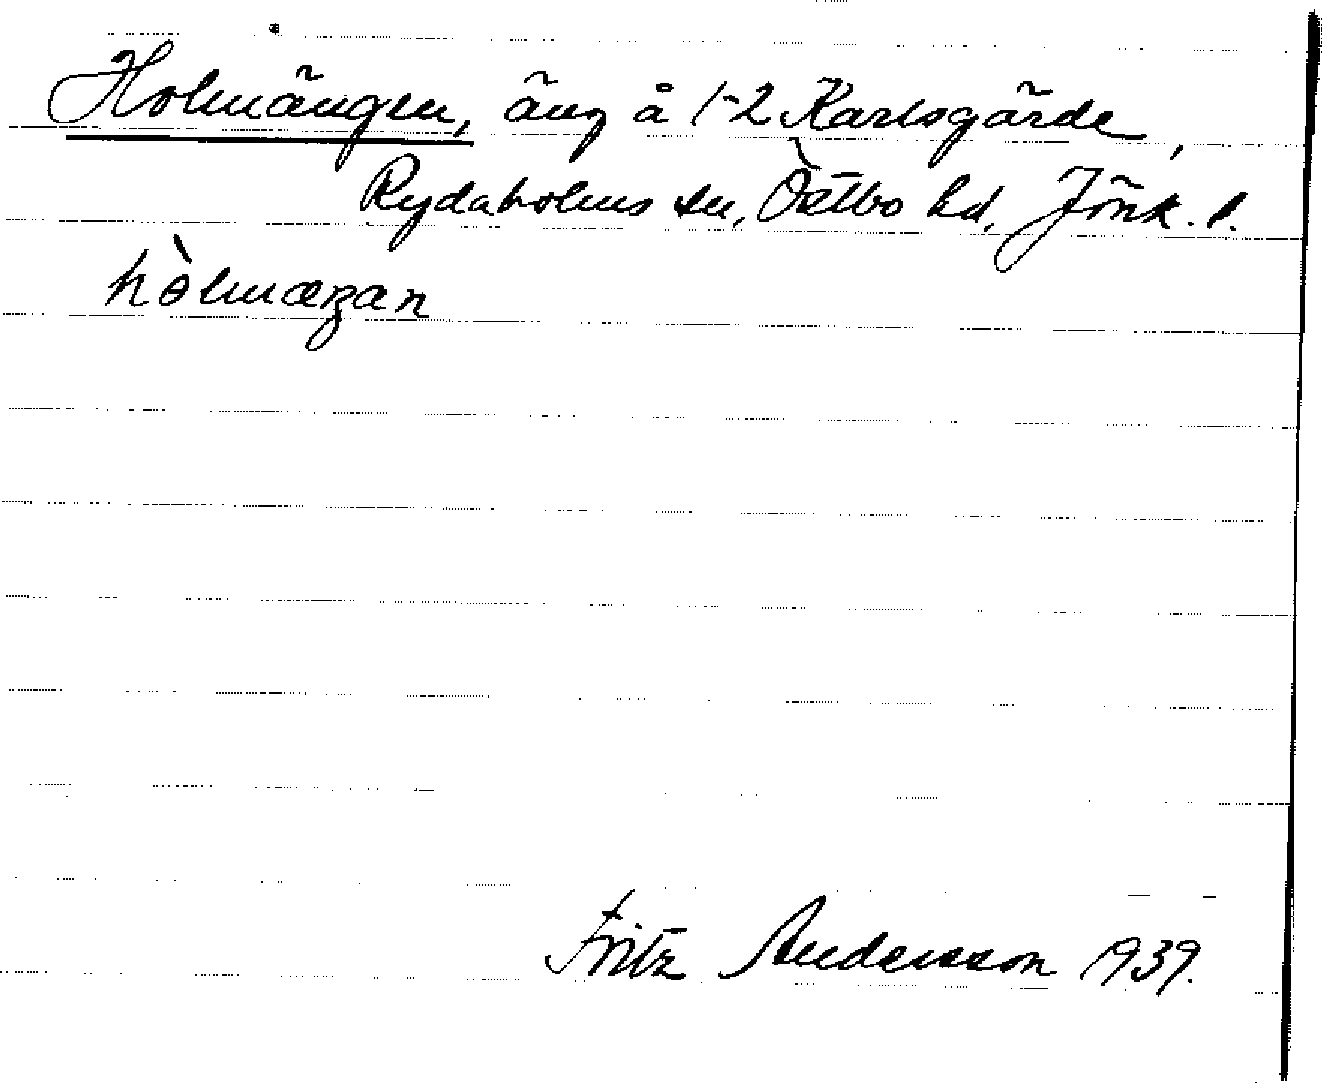 Holmängen, äng å 1-2 Karlsgärde,
Rydaholms sn, Östbo hd, Jönk. l.
hòlmæŋan
Fritz Andersson 1939.